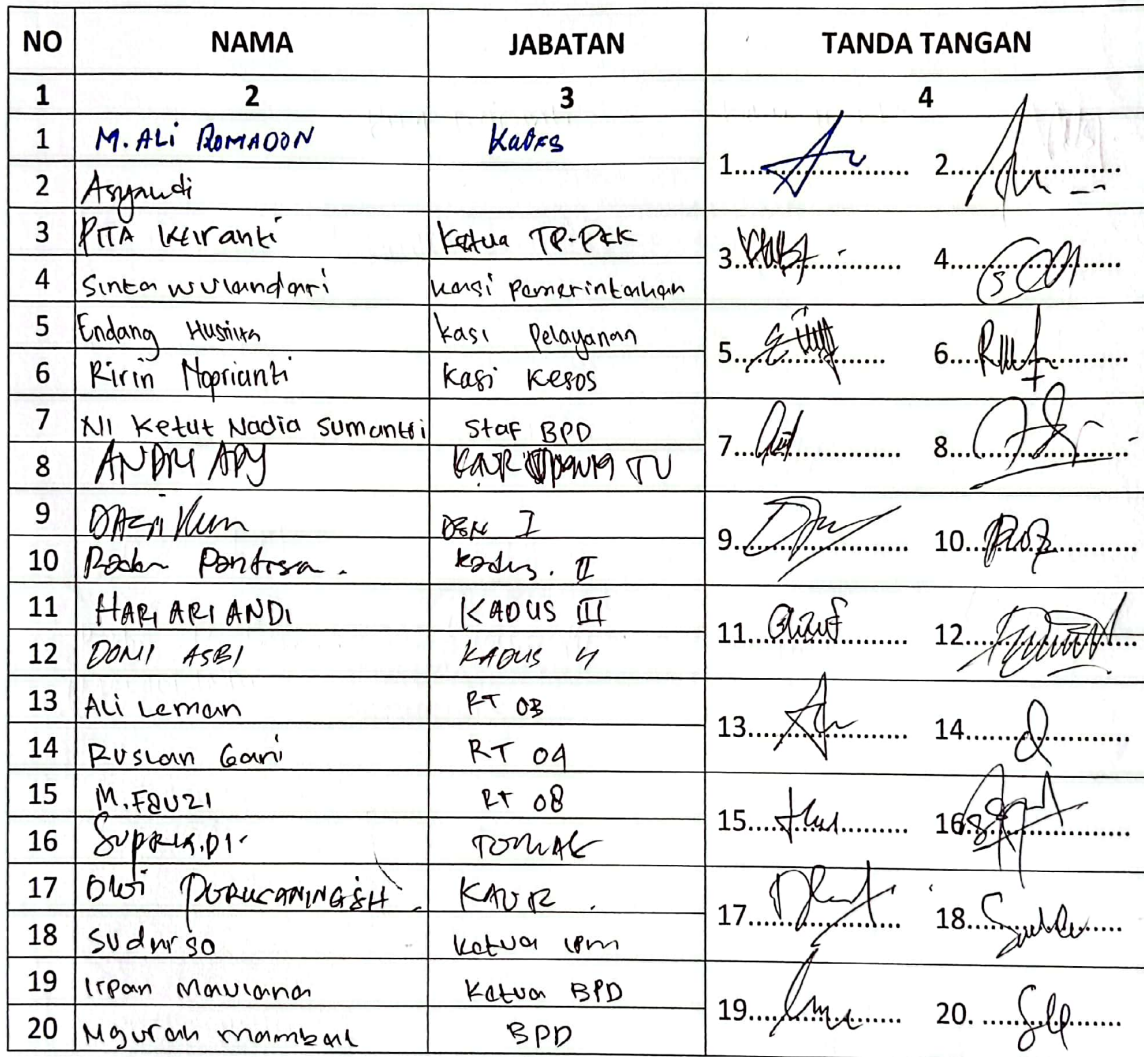 NO NAMA JABATAN TANDA TANGAN
1 2 3 4
1 M. ALi ROMADON KADES 1. 2.
2 Asyaudi
3 PITA Keiranti Ketua TP-PKK 3. 4.
4 Sinta wulandari kasi pemerintahan
5 Endang Husnita kasi Pelayanan 5. 6.
6 Ririn Noprianti Kasi Kesos
7 NI Ketut Nadia Sumantri Staf BPD 7. 8.
8 ANDRI ADY KAUR TU
9 I 9. 10.
10 Raden Kadus. II
11 HARI ARI ANDI KADUS III 11. 12.
12 DONI ASBI KADUS 4
13 Ali Leman RT 03 13. 14.
14 Ruslan Gani RT 04
15 M. Fauzi RT 08 15. 16.
16 SUPRIADI
17 Dwi KAUR. 17. 18.
18 Sudarso Ketua LPM
19 Irpan Maulana Ketua BPD 19. 20.
20 Ngurah BPD